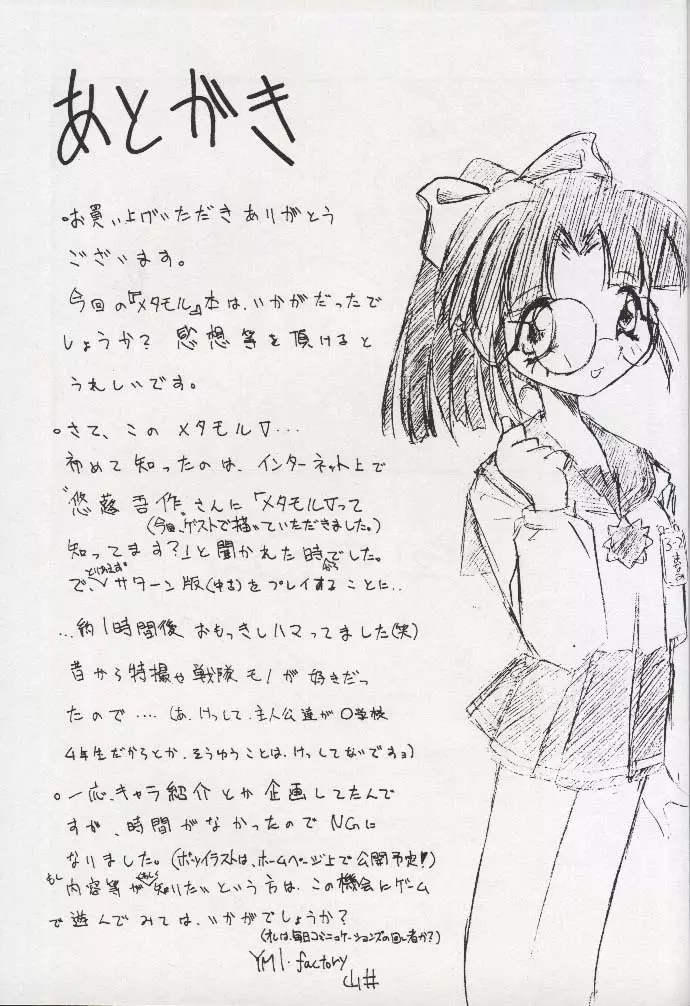 あとがき
。お買い上げいただきありがとう
ございます。
今回の『メタモル』本は、いかがだったで
しょうか? 感想等を頂けると
うれしいです。
。さて、このメタモルV・・・
初めて知ったのは、インターネット上で
"悠藤吾作"さんに「メタモルVって
(今回、ゲストで描いていただきました。)
知ってます?」と聞かれた時でした。
で、とりあえずサターン版(中古)をプレイすることに・・
・・・約1時間後 おもっきしハマってました(笑)
昔から特撮や戦隊モノが好きだっ
たので・・・・(あ、けっして、主人公達が〇学校
4年生だからとか、そうゆうことは、けっしてないですョ)
。一応、キャラ紹介とか企画してたんで
すが、時間がなかったのでNGに
なりました。(ボツイラストは、ホームページ上で公開予定!)
もし内容等がくわしく知りたいという方は、この機会にゲーム
で遊んでみては、いかがでしょうか?
(オレは、毎日コミュニケーションズの回し者か?)
YMI・factory
山井